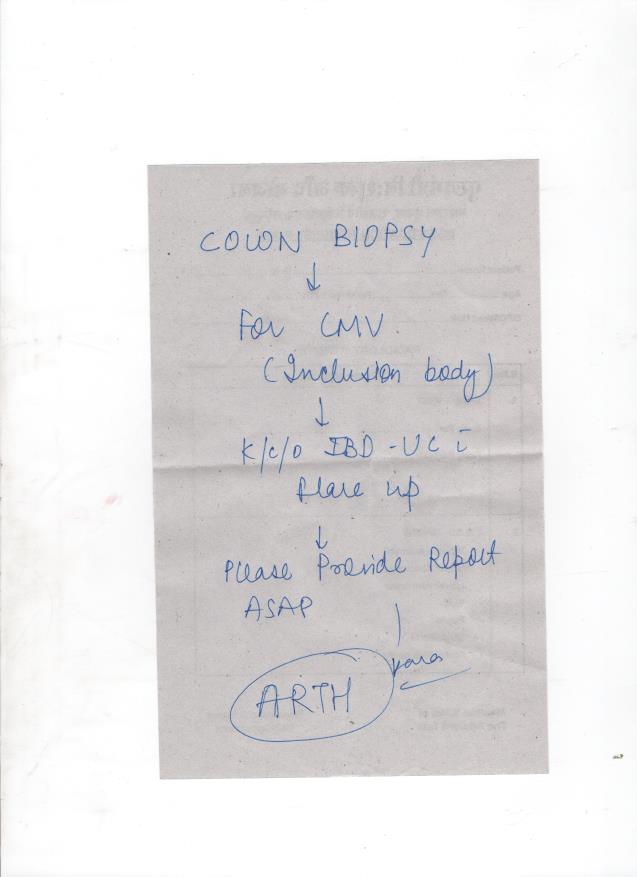 COLON BIOPSY
↓
For CMV
(Inclusion body)
↓
K/c/o IBD-UC c̄
flare up
↓
Please Provide Report
ASAP
ARTH